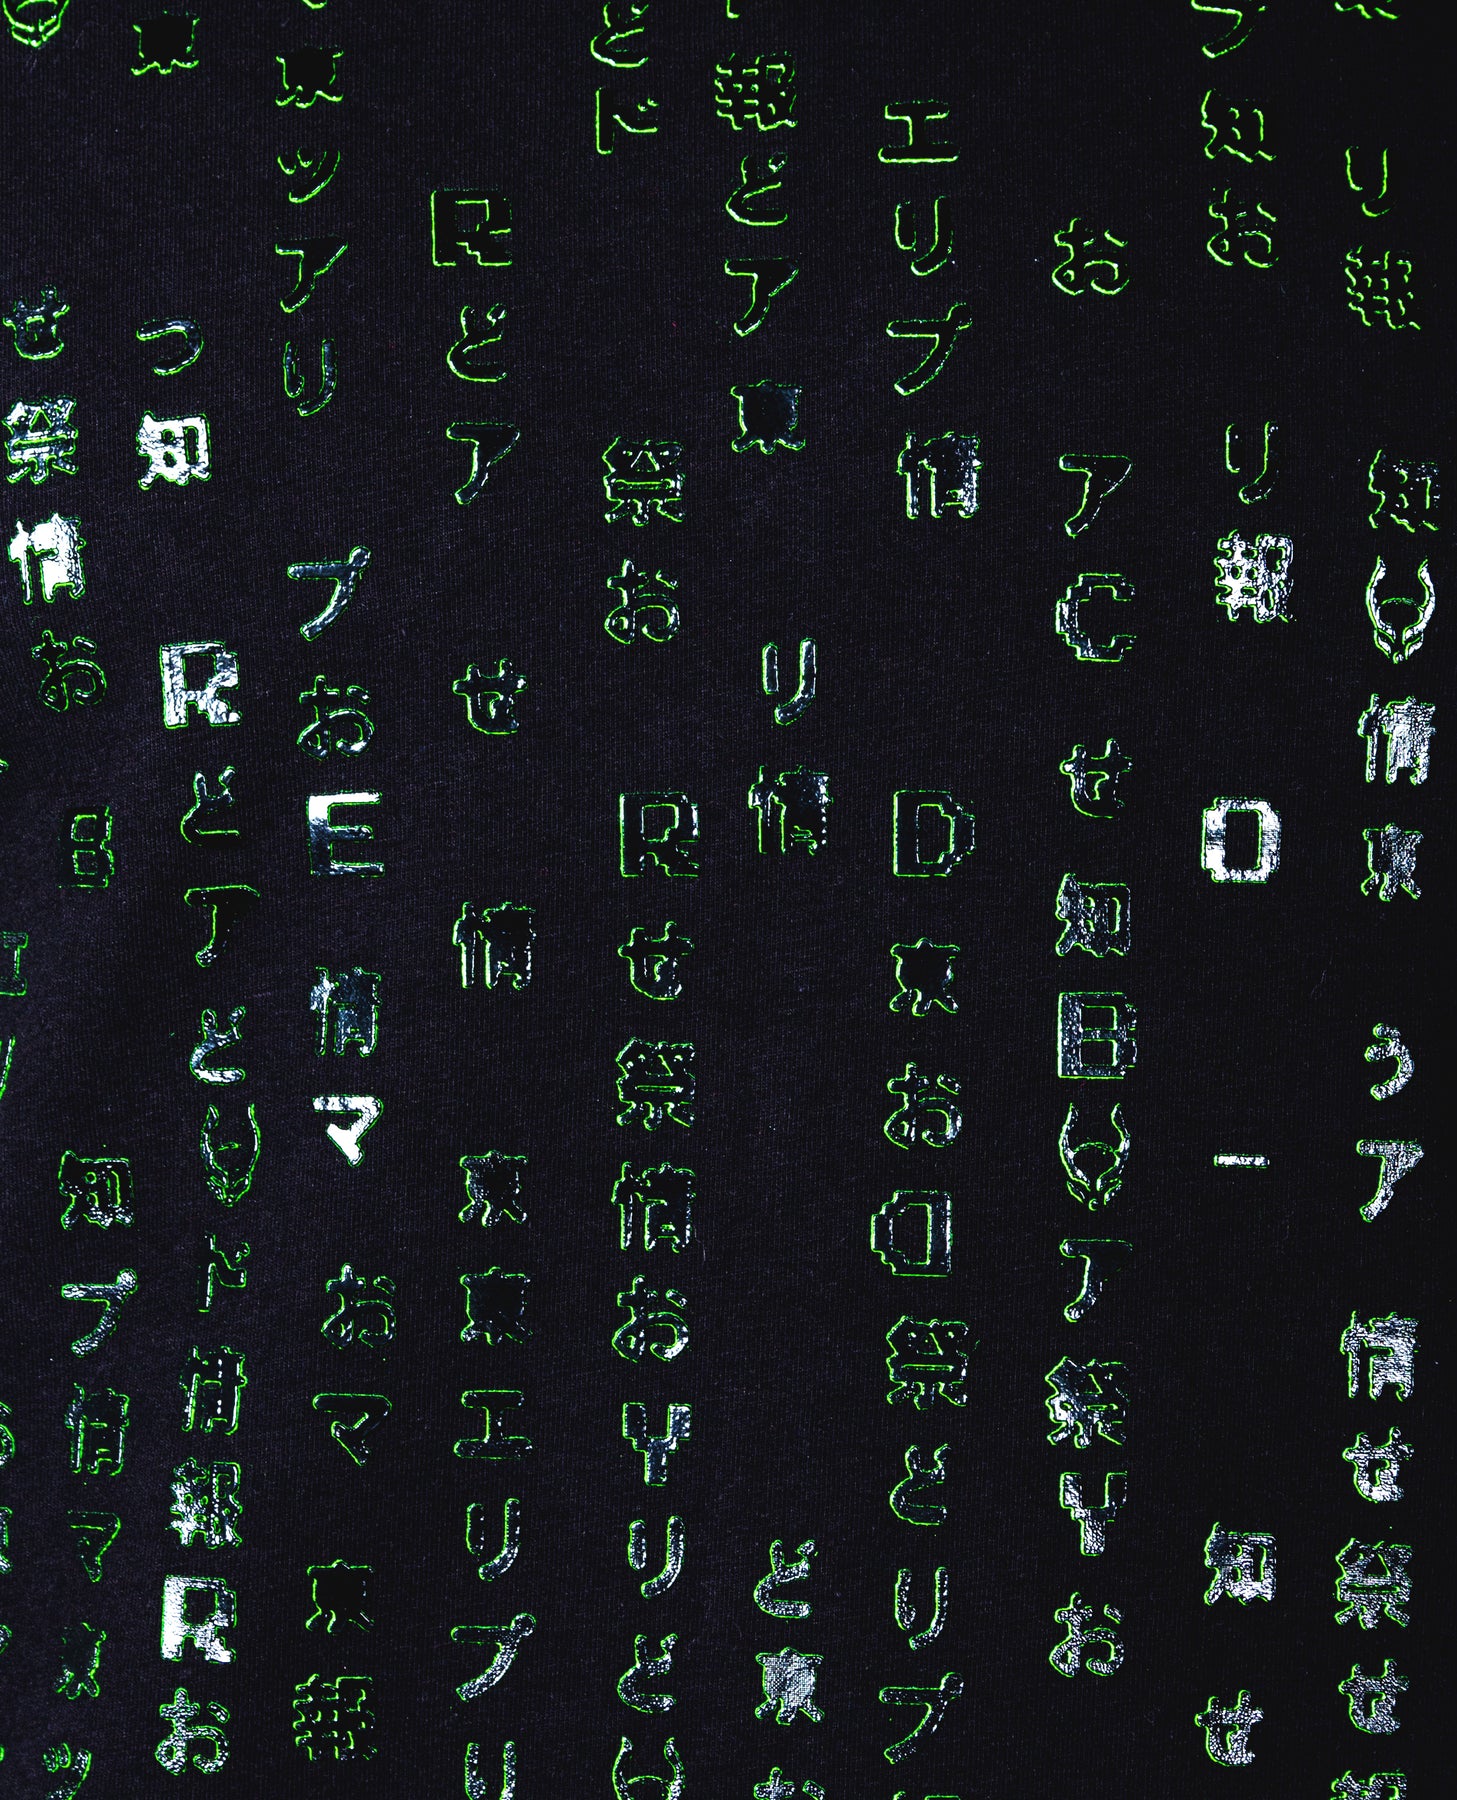 リ報知情東うア情せ祭せ
プ知おリ報Oー知せ
おアCせ知Bア祭Yお
エリプ情D東お祭どリプ
報どア東リ情ど東
どド祭おRせ祭情おYリど
Rどアせ情東東エリプリ
東ツアリプおE情マおマ東報
東つ知Rどアどド情報Rお
せ祭情おB知プ情マ東ツ